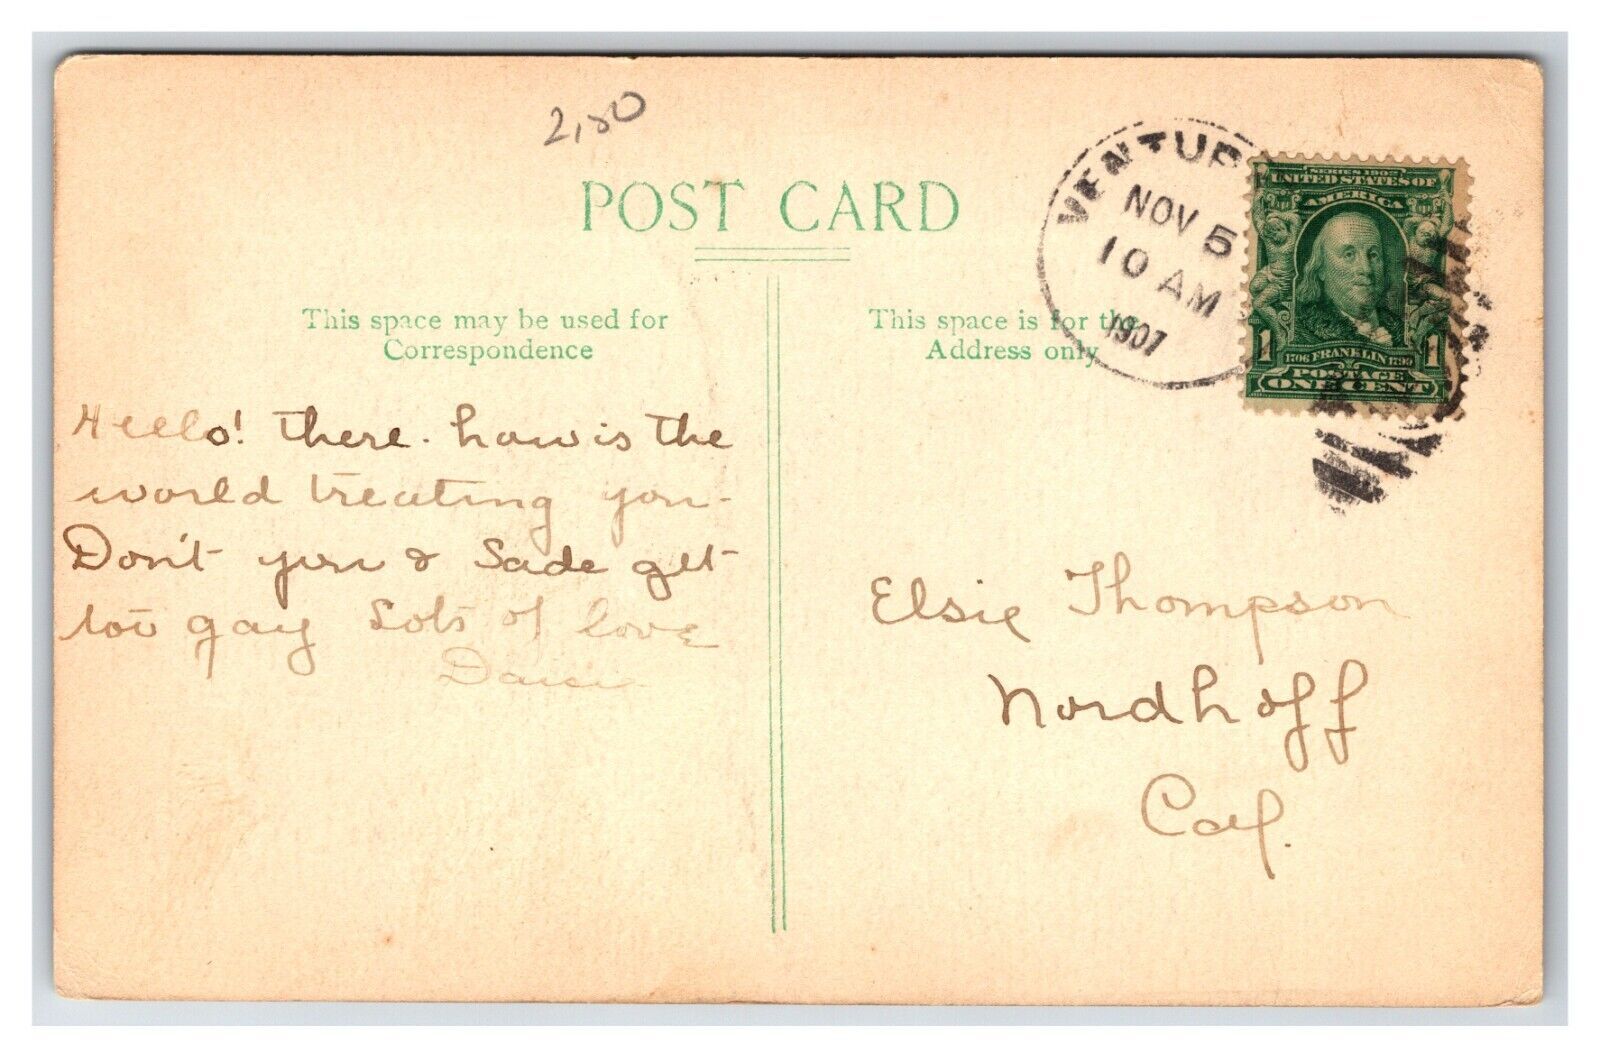 2,50
POST CARD
VENTUR
NOV 5
10 AM
1907
SERIES 1902
UNITED STATES OF
AMERICA
1 1706 FRANKLIN 1790 1
POSTAGE
ONE CENT
This space may be used for
Correspondence
This space is for the
Address only
Hello! there. how is the
world treating you-
Don't you & Sade get
too gay Lots of love
Daisie
Elsie Thompson
Nordhoff
Cal.